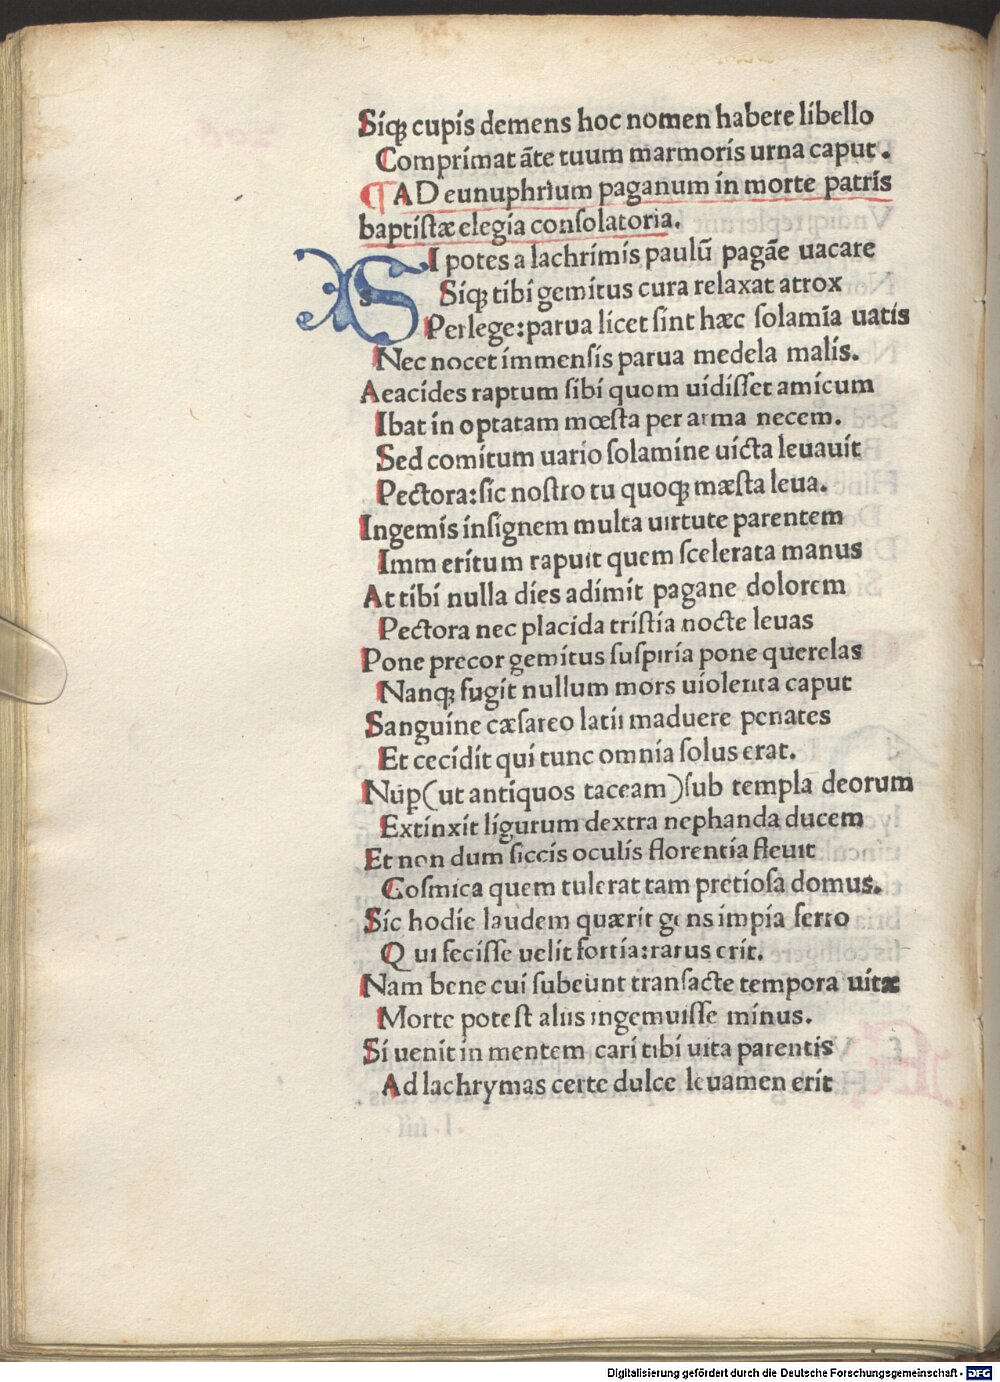 Siqꝫ cupis demens hoc nomen habere libello
Comprimat āte tuum marmoris urna caput.
¶ AD eunuphrium paganum in morte patris
baptistæ elegia consolatoria.
SI potes a lachrimis paulū pagāe uacare
Siqꝫ tibi gemitus cura relaxat atrox
Perlege:parua licet sint hæc solamia uatis
Nec nocet immensis parua medela malis.
Aeacides raptum sibi quom uidisset amicum
Ibat in optatam mœsta per arma necem.
Sed comitum uario solamine uicta leuauit
Pectora:sic nostro tu quoqꝫ mæsta leua.
Ingemis insignem multa uirtute parentem
Imm eritum rapuit quem scelerata manus
At tibi nulla dies adimit pagane dolorem
Pectora nec placida tristia nocte leuas
Pone precor gemitus suspiria pone querelas
Nanqꝫ fugit nullum mors uiolenta caput
Sanguine cæsareo latii maduere penates
Et cecidit qui tunc omnia solus erat.
Nuꝑ(ut antiquos taceam)sub templa deorum
Extinxit ligurum dextra nephanda ducem
Et non dum siccis oculis florentia fleuit
Cosmica quem tulerat tam pretiosa domus.
Sic hodie laudem quærit gens impia ferro
Qui fecisse uelit fortia:rarus erit.
Nam bene cui subeunt transacte tempora uitæ
Morte potest aliis ingemuisse minus.
Si uenit in mentem cari tibi uita parentis
Ad lachrymas certe dulce leuamen erit
Digitalisierung gefördert durch die Deutsche Forschungsgemeinschaft - DFG